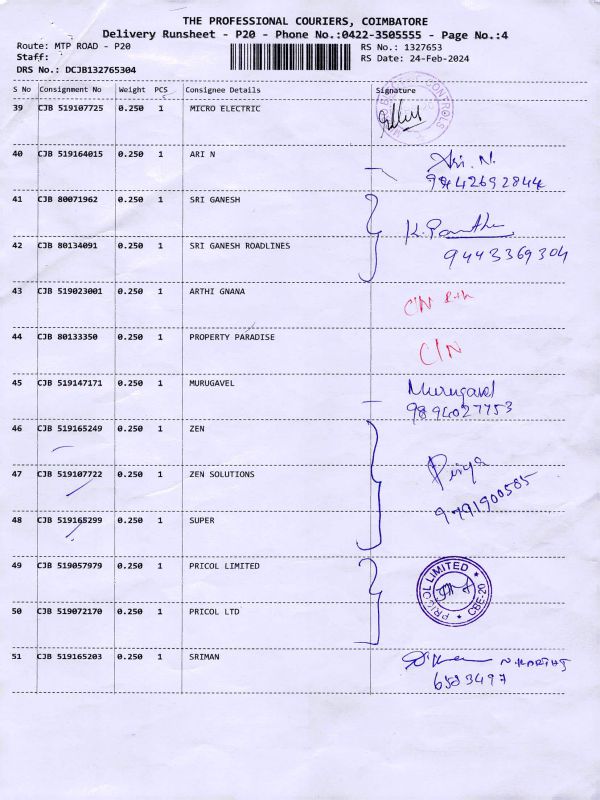 THE PROFESSIONAL COURIERS, COIMBATORE
Delivery Runsheet - P20 - Phone No.:0422-3505555 - Page No.:4
Route: MTP ROAD - P20 RS No.: 1327653
Staff: RS Date: 24-Feb-2024
DRS No.: DCJB132765304
S No Consignment No Weight PCS Consignee Details Signature
39 CJB 519107725 0.250 1 MICRO ELECTRIC
40 CJB 519164015 0.250 1 ARI N Ari. N.
9842692844
41 CJB 80071962 0.250 1 SRI GANESH
42 CJB 80134091 0.250 1 SRI GANESH ROADLINES 9443369304
43 CJB 519023001 0.250 1 ARTHI GNANA C/N
44 CJB 80133350 0.250 1 PROPERTY PARADISE C/N
45 CJB 519147171 0.250 1 MURUGAVEL Murugavel
9894027753
46 CJB 519165249 0.250 1 ZEN
47 CJB 519107722 0.250 1 ZEN SOLUTIONS Priya
9791900585
48 CJB 519165299 0.250 1 SUPER
49 CJB 519057979 0.250 1 PRICOL LIMITED PRICOL LIMITED ★ CBE-20 ★
50 CJB 519072170 0.250 1 PRICOL LTD
51 CJB 519165203 0.250 1 SRIMAN
6583497